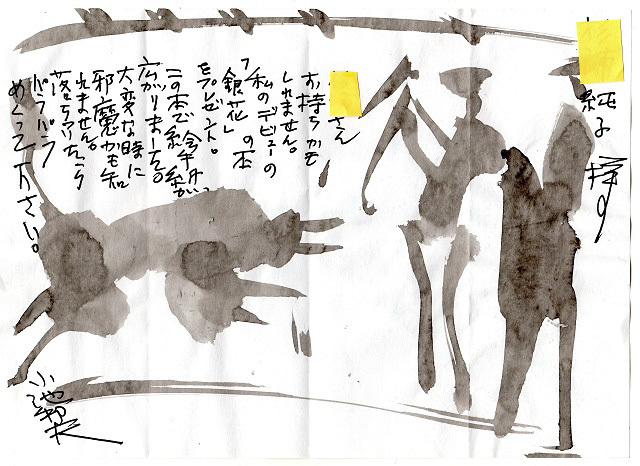 純子 様
さん
お持ちかも
しれません。
私のデビューの
「銀花」の本
をプレゼント。
この本で絵手紙が
広がりました。
大変な時に
邪魔かも知
れません。
落ちついたら
パラパラ
めくって下さい。
小池邦夫